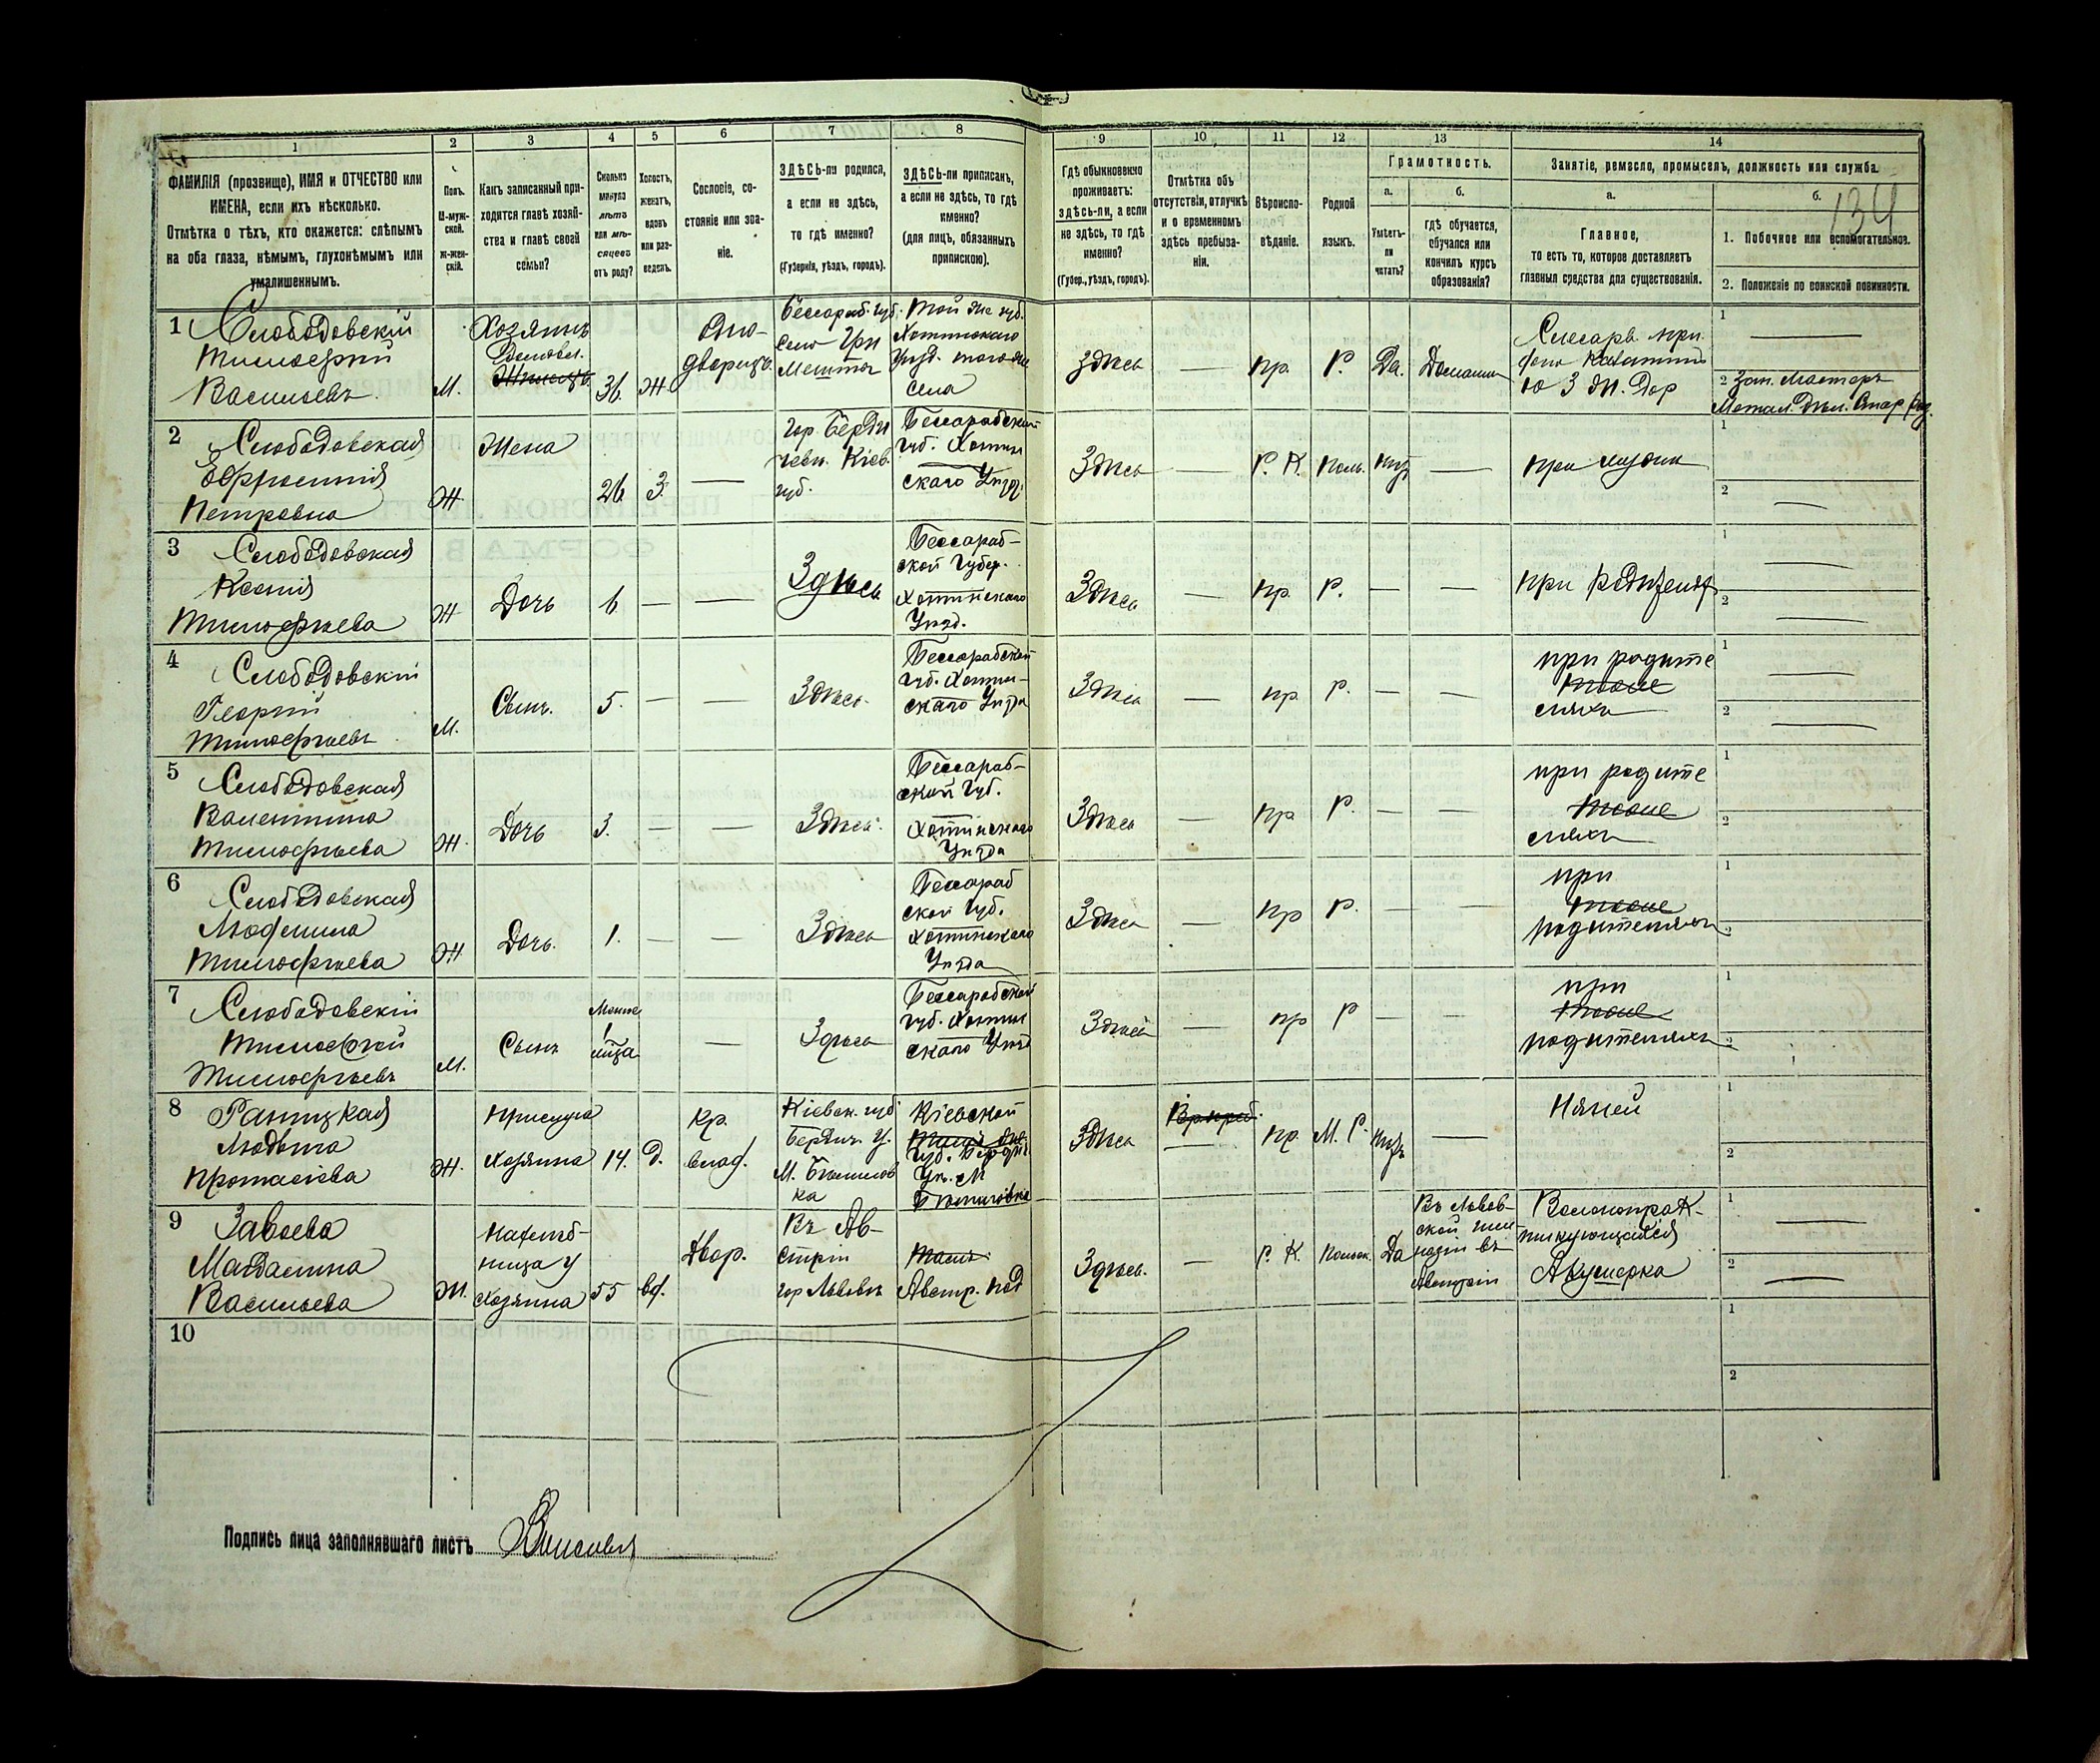 1 2 3 4 5 6 7 8 9 10 11 12 13 14
ФАМИЛІЯ (прозвище), ИМЯ и ОТЧЕСТВО или
ИМЕНА, если ихъ нѣсколько.
Отмѣтка о тѣхъ, кто окажется: слѣпымъ
на оба глаза, нѣмымъ, глухонѣмымъ или
умалишеннымъ.
Полъ.
М-муж-
ской.
ж-жен-
скій.
Какъ записанный при-
ходится главѣ хозяй-
ства и главѣ своей
семьи?
Сколько
минуло
лѣтъ
или мѣ-
сяцевъ
отъ роду?
Холостъ,
женатъ,
вдовъ
или раз-
веденъ.
Сословіе, со-
стояніе или зва-
ніе.
ЗДѢСЬ-ли родился,
а если не здѣсь,
то гдѣ именно?
(Губернія, уѣздъ, городъ).
ЗДѢСЬ-ли приписанъ,
а если не здѣсь, то гдѣ
именно?
(для лицъ, обязанныхъ
припискою).
Гдѣ обыкновенно
проживаетъ:
здѣсь-ли, а если
не здѣсь, то гдѣ
именно?
(Губер., уѣздъ, городъ).
Отмѣтка объ
отсутствіи, отлучкѣ
и о временномъ
здѣсь пребыва-
ніи.
Вѣроиспо-
вѣданіе.
Родной
языкъ.
Грамотность.
а.
Умѣетъ-
ли
читать?
б.
гдѣ обучается,
обучался или
кончилъ курсъ
образованія?
Занятіе, ремесло, промыселъ, должность или служба.
а.
Главное,
то есть то, которое доставляетъ
главныя средства для существованія.
б.
134
1. Побочное или вспомогательное.
2. Положеніе по воинской повинности.
1 Слободовскій
Тимофѣй
Васильевъ
М.
Хозяинъ
36
Ж
Одно-
дворецъ
Бессараб. губ.
Село
Той же губ.
Хотинскаго
Уѣзд. того же
села
здѣсь
—
пр.
Р.
Да.
Домашн
Слесарь при
1
2 Зап. Мастеръ
2 Слободовская
Ефросинія
Петровна
Ж
Жена
26
З.
—
гор. Берди
чевъ. Кіев.
губ.
Бессарабской
губ. Хотин
скаго Уѣзд
Здѣсь
—
Р. К.
Поль.
—
при мужѣ
1
2 —
3 Слободовская
Ксенія
Тимофѣева
Ж
Дочь
6
—
—
Здѣсь
Бессараб-
ской Губер.
Хотинскаго
Уѣзд.
Здѣсь
—
пр.
Р.
—
—
при родителях
1 —
2 —
4 Слободовскій
Георгій
Тимофѣевъ
М.
Сынъ.
5.
—
—
Здѣсь.
Бессарабской
Губ. Хотин-
скаго Уѣзда
Здѣсь
—
пр.
Р.
—
—
при родите
ляхъ
1 —
2 —
5 Слободовская
Валентина
Тимофѣева
Ж.
Дочь
3.
—
—
Здѣсь.
Бессараб-
ской Губ.
Хотинскаго
Уѣзда
Здѣсь
—
пр
Р.
—
—
при родите
ляхъ
1
2
6 Слободовская
Людмила
Тимофѣева
Ж
Дочь.
1.
—
—
Здѣсь
Бессараб
ской Губ.
Хотинскаго
Уѣзда
Здѣсь
—
пр
Р.
—
—
при
родителяхъ
1
2
7 Слободовскій
Тимофѣй
Тимофѣевъ
М.
Сынъ
Менѣе
1
мѣца
—
Здѣсь
Бессарабской
Губ. Хотин
скаго Уѣзд
Здѣсь
—
пр
Р
—
—
при
родителяхъ
1
2
8
Протасіева
Ж.
Прислуга
Хозяина
14.
д.
Кр.
влад.
Кіевск. губ.
Бердич. У.
М.
Кіевской
Здѣсь
—
пр.
М. Р.
—
Няней
1
2
9
Магдалина
Васильева
Ж.
Нахлѣб-
ница у
Хозяина
55
вд.
Двор.
Въ Ав-
стріи
гор Львовъ
Австр. под
Здѣсь.
—
Р. К.
Польск.
Да
Въ Львов-
ской гим
назіи въ
Австріи
Вольнопрак-
тикующаяся
Акушерка
1 —
2 —
10
1
2
Подпись лица заполнявшаго листъ